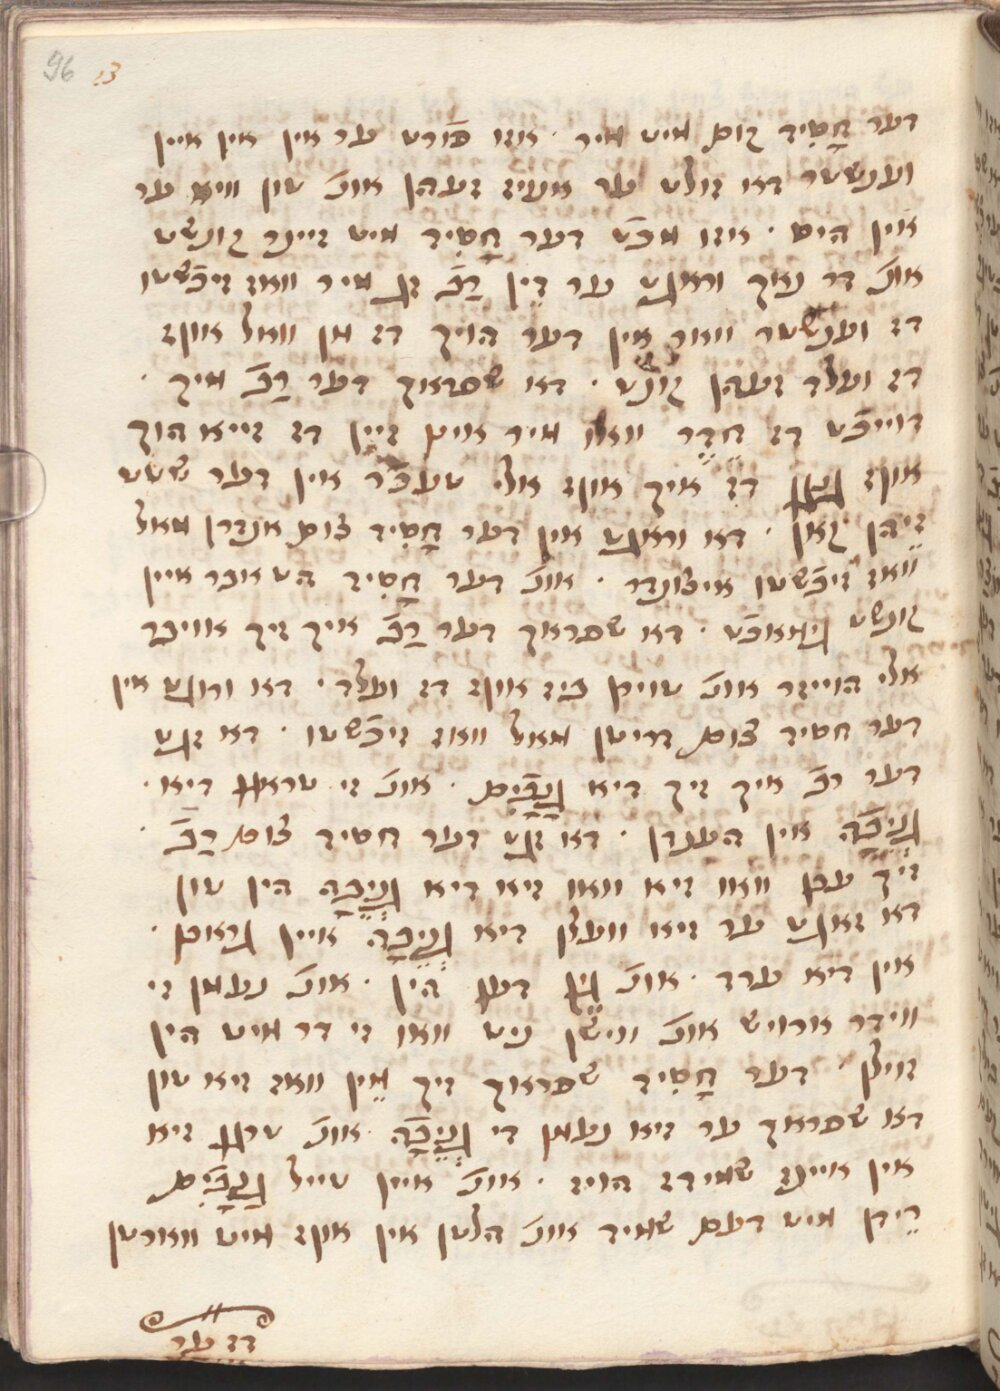 96 13
דער חָסִיד קום מיט מיר · אזו פֿורט ער אין אין איין
וענשטר דאו זולט ער אנייז זעהן אונ' טון וויא ער
אין היס · אזו מכֿט דער חָסִיד מיט זיינר קונשט
אונ' דר נאך וראגט ער דֵין רַבֿ זג מיר וואז זיכֿשטו
דז וענשטר וואר אין דער הויך דז מן וואל אונז
דז ועלד זעהן קונט · דאו שפראך דער רַבֿ איך ·
דוייכֿט דז חֶדֶר וואו מיר אוים זיין דז זייא הוך
אונז גִיגן דז איך אונז אלי טעכֿר אין דער שטט
זֵיהן קאן · דאו וראגט אין דער חָסִיד צום אנדרן מאל
וואז זיכֿשטו איצונדר · אונ' דער חָסִיד הט אבר איין
קונשט גימאכֿט · דאו שפראך דער רַבֿ איך זיך אויבר
אלי הוייזר אונ' טוירן ביז אונז דז ועלד · דאו ורוגט אין
דער חסיד צום דריטן מאל וואז זיכֿשטו · דאו זגט
דער רבֿ איך זיך דיא גַנָבִֿים · אונ' זי טראגן דיא ·
גְנֵיבָֿה אין הענדן · דאו זגט דער חסיד צום רַבֿ ·
זיך עבן וואו זיא וואו זיא דיא גְנֵיבָֿה הין טון
דאו זאגט ער זיאו וועלן דיא גְנֵיבָֿה איין גראבן ·
אין דיא ערד · אונ' גֵין דען הִין · אונ' נעמן זי
ווידר ארויש אונ' ווישן ניט וואו זי דר מיט הין
זוילן · דער חָסִיד שפראך זיך אֵין וואז זיאו טון
דאו שפראך ער זיא נעמן די גְנֵיבָֿה אונ' טרגן זיא
אין איינז שמידז הויז · אונ' איין טייל גַנָבִֿים
רֵידן מיט דעם שמיד אונ' הלטן אין אונז מיט ווארטן
דז ער